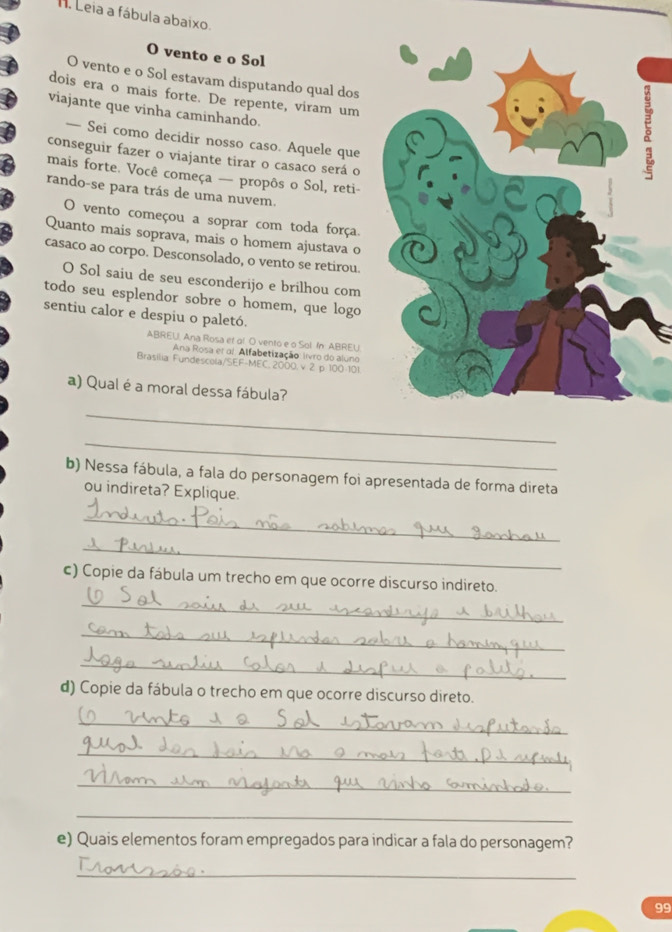 11. Leia a fábula abaixo.
O vento e o Sol
O vento e o Sol estavam disputando qual dos
dois era o mais forte. De repente, viram um
viajante que vinha caminhando.
— Sei como decidir nosso caso. Aquele que
conseguir fazer o viajante tirar o casaco será o
mais forte. Você começa — propôs o Sol, reti-
rando-se para trás de uma nuvem.
O vento começou a soprar com toda força.
Quanto mais soprava, mais o homem ajustava o
casaco ao corpo. Desconsolado, o vento se retirou.
O Sol saiu de seu esconderijo e brilhou com
todo seu esplendor sobre o homem, que logo
sentiu calor e despiu o paletó.
ABREU, Ana Rosa et al. O vento e o Sol. In: ABREU,
Ana Rosa et al. Alfabetização: livro do aluno.
Brasília: Fundescola/SEF-MEC, 2000. v. 2. p. 100-101.
Língua Portuguesa
a) Qual é a moral dessa fábula?
b) Nessa fábula, a fala do personagem foi apresentada de forma direta
ou indireta? Explique.
Indireto. Pois não sabemos que ganhou
e Perdeu.
c) Copie da fábula um trecho em que ocorre discurso indireto.
O Sol saiu de seu esconderijo e brilhou
com todo seu esplendor sobre o homem, que
logo sentiu calor e despiu o paletó.
d) Copie da fábula o trecho em que ocorre discurso direto.
O vento e o Sol estavam disputando
qual dos dois era o mais forte. De repente,
viram um viajante que vinha caminhado.
e) Quais elementos foram empregados para indicar a fala do personagem?
Travessão.
99